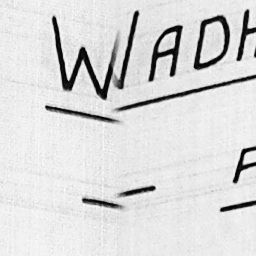 WADH
F